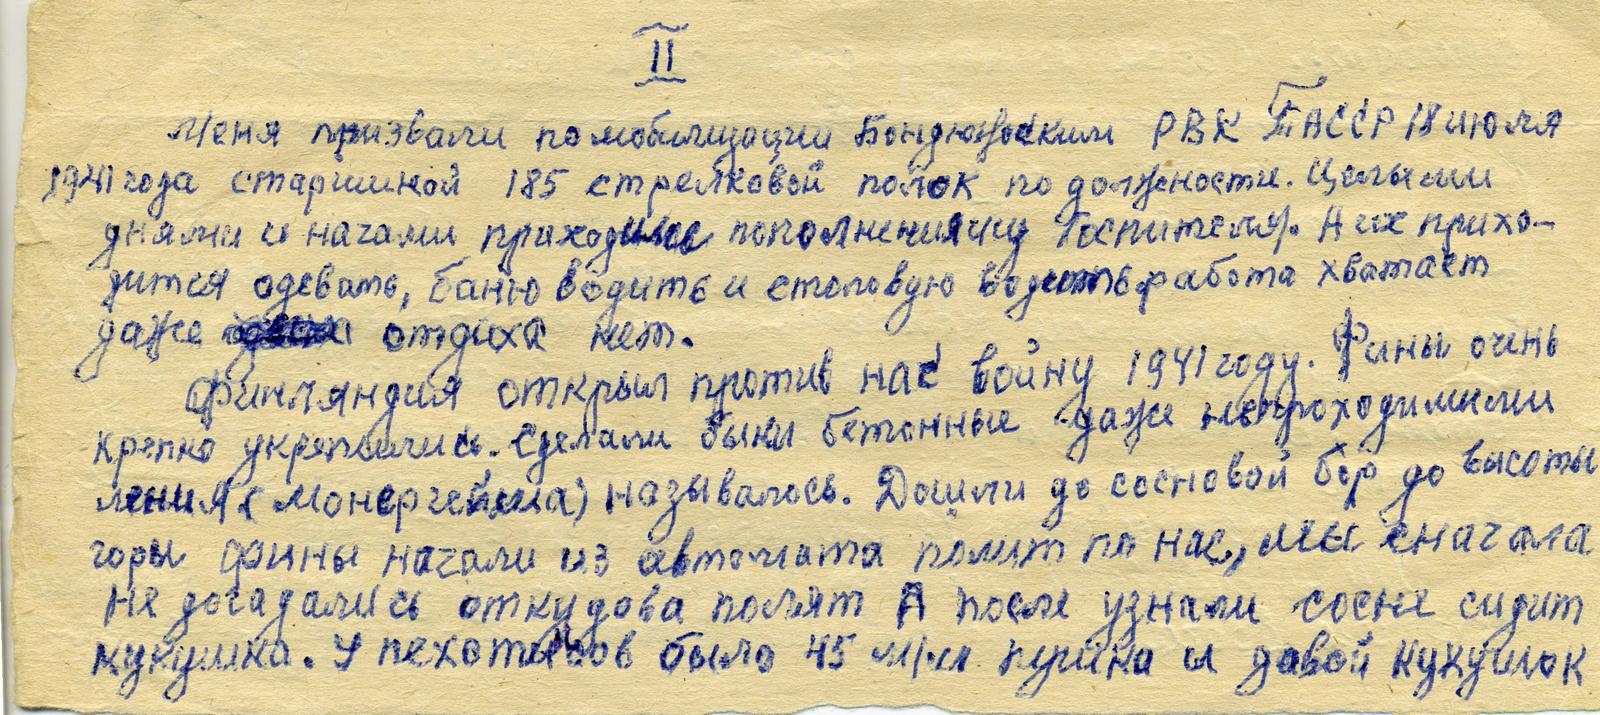 II
Меня призвали по мобилизации Бондюжским РВК ТАССР 18 июля
1941 года старшиной 185 стрелковой полок по должности. Целыми
днями и начами приходились пополнения из Госпителя. А их прихо-
дится одевать, баню водить и столовую водить работа хватает
даже отдиха нет.
Финляндия открыл против нас войну 1941 году. Фины очень
крепко укрепились. Сделали быки бетонные даже непроходимыми
ления (Монергейма) называлось. Дошли до сосновой бор до высоты
горы фины начали из автомата полит по нас, мы сначала
не догадались откудова полят А после узнали сосне сидит
кукушка. У пехотинцов было 45 м/м пушка и давой кукушок